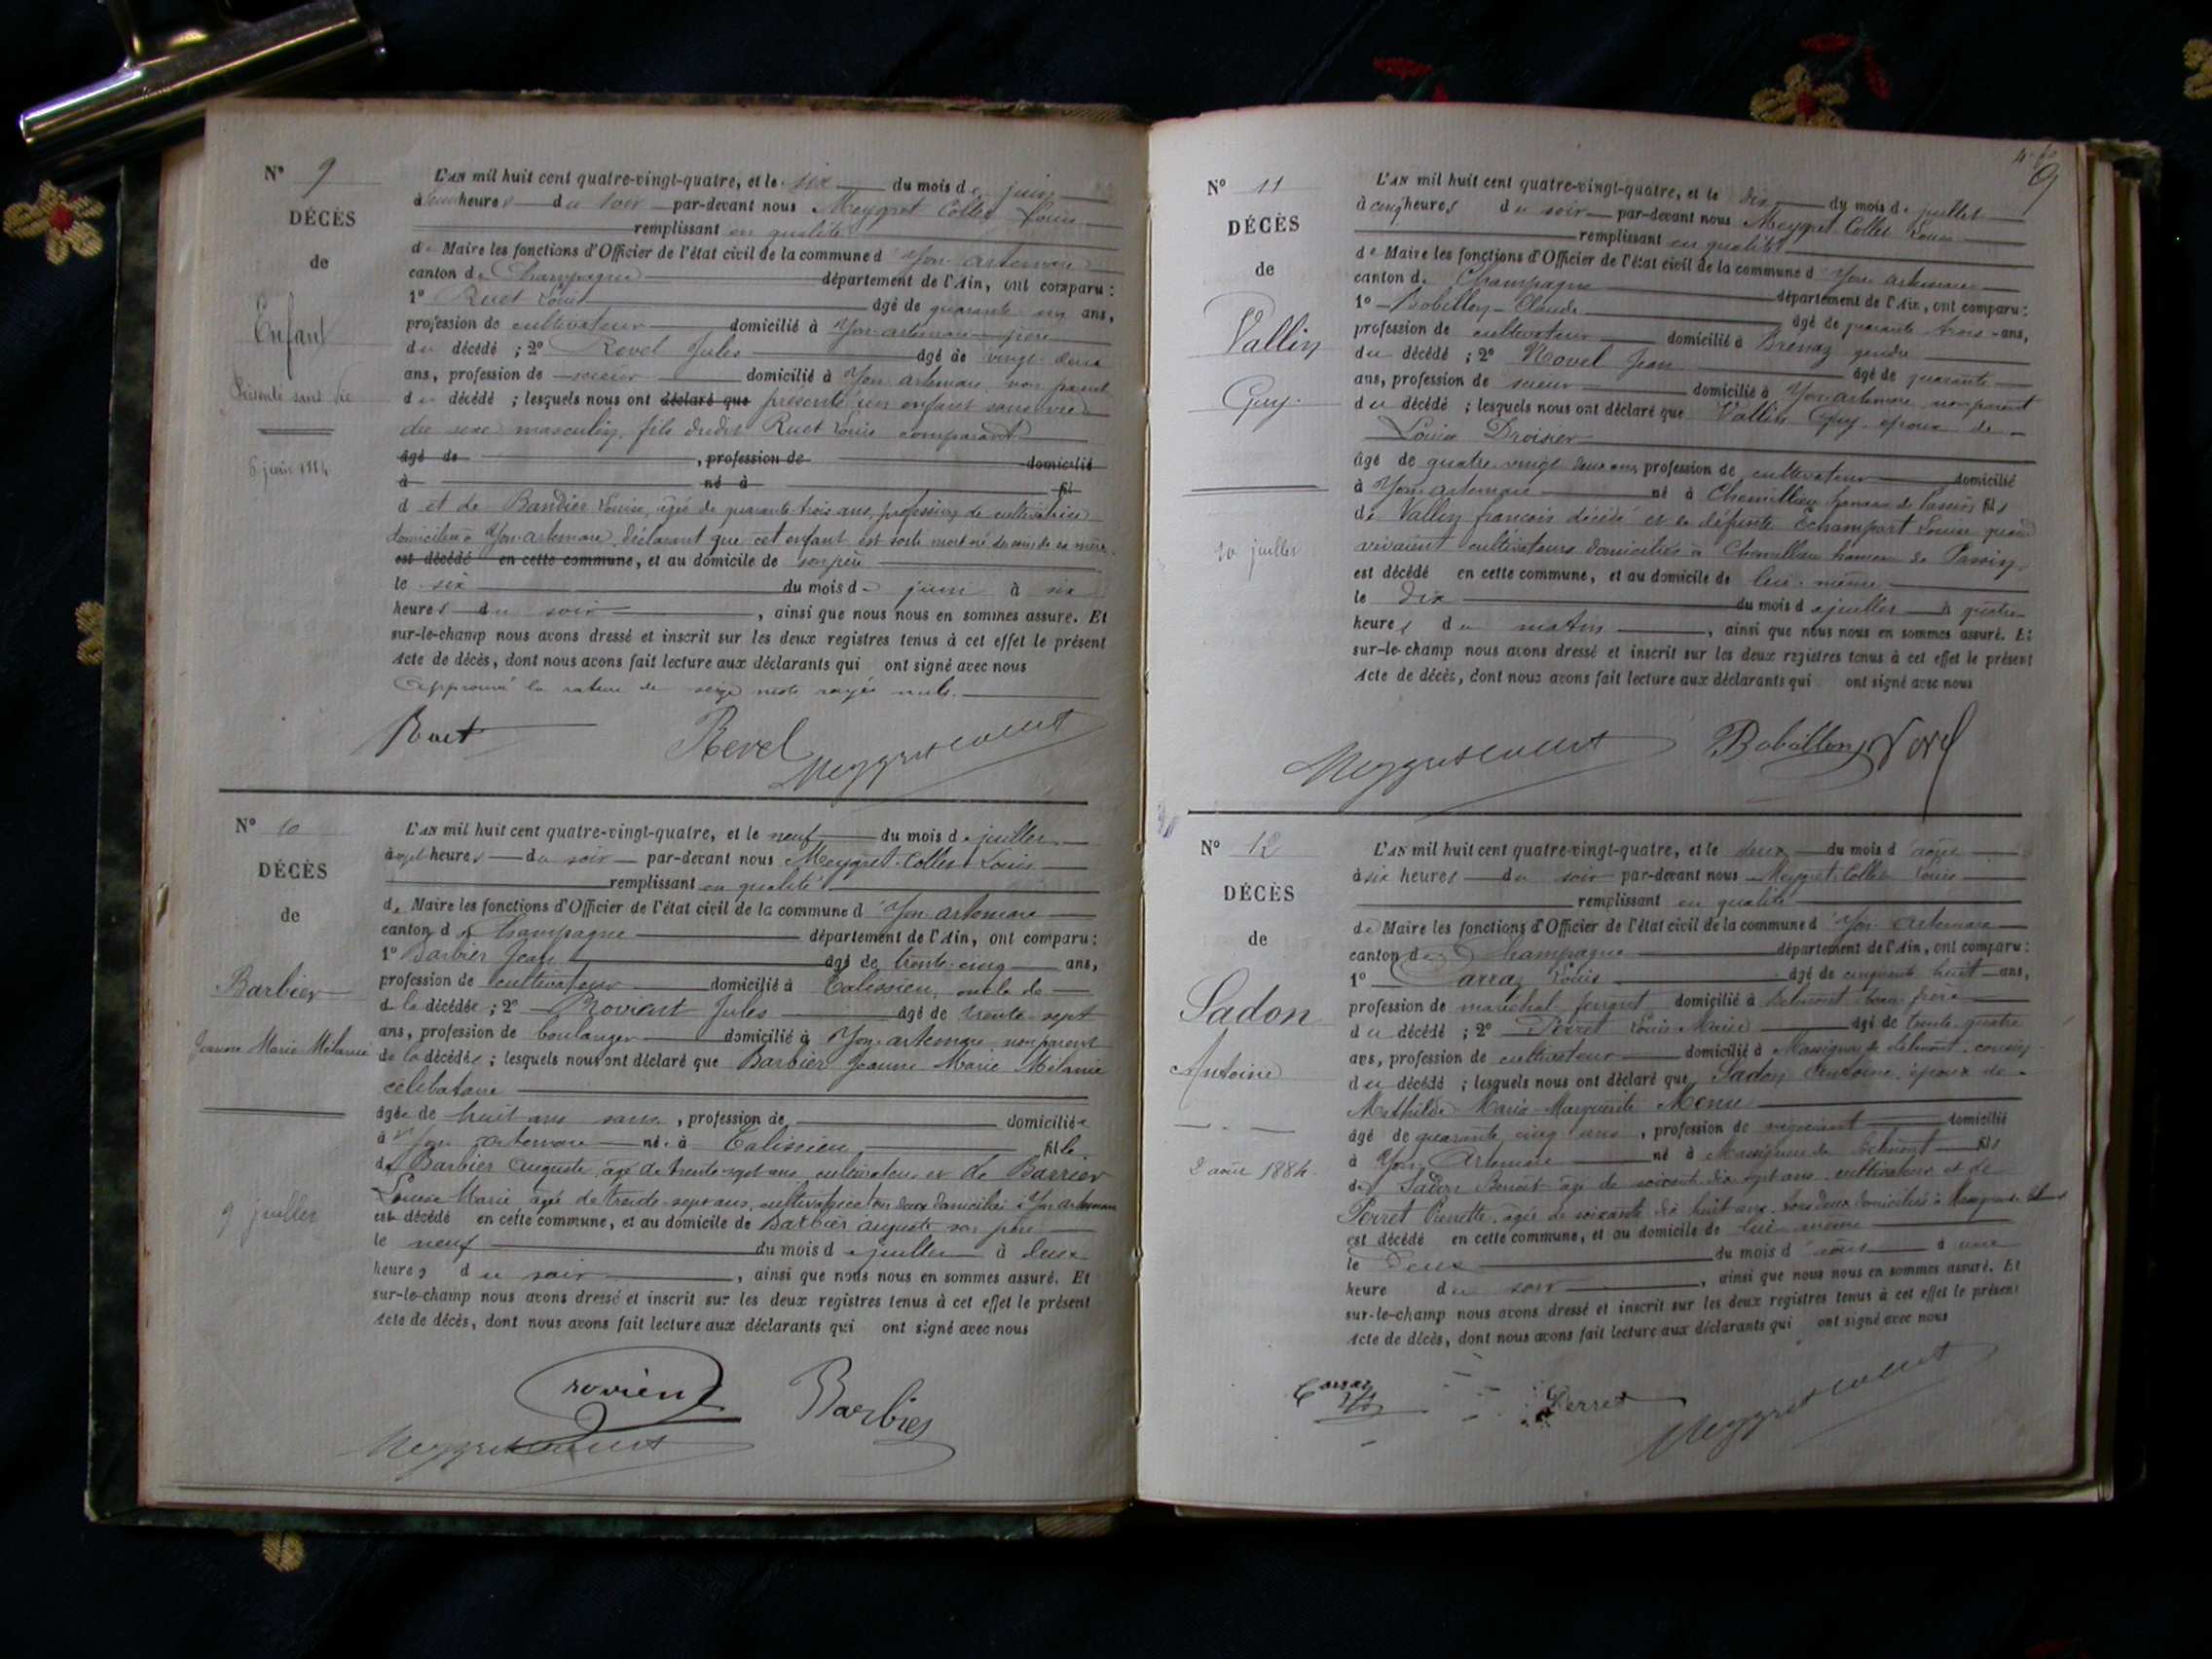 N° 9
DÉCÈS
de
Enfant
Présenté sans vie
6 juin 1884
L'AN mil huit cent quatre-vingt-quatre, et le six du mois de juin
à heures du soir par-devant nous Meygret Collet Louis
remplissant en qualité
de Maire les fonctions d'Officier de l'état civil de la commune d'Yon-artemare
canton de Champagne département de l'Ain, ont comparu :
1° Ruet Louis âgé de quarante un ans,
profession de cultivateur domicilié à Yon-artemare père
du décédé ; 2° Revel Jules âgé de vingt deux
ans, profession de domicilié à Yon artemare, non parent
du décédé ; lesquels nous ont déclaré que présenté un enfant sans vie
du sexe masculin, fils dudit Ruet Louis comparant
âgé de , profession de domicilié
à né à fil
d et de Bandier Louise, âgée de quarante-trois ans, profession de cultivatrice
domiciliée à Yon-artemare, déclarant que cet enfant est sorti mort né du sein de sa mère
est décédé en cette commune, et au domicile de son père
le six du mois de juin à six
heures du soir , ainsi que nous nous en sommes assuré. Et
sur-le-champ nous avons dressé et inscrit sur les deux registres tenus à cet effet le présent
Acte de décès, dont nous avons fait lecture aux déclarants qui ont signé avec nous
Approuvé la rature de seize mots rayés nuls.
Ruet Revel Meygretcollet
N° 10
DÉCÈS
de
Barbier
Jeanne Marie Mélanie
9 juillet
L'AN mil huit cent quatre-vingt-quatre, et le neuf du mois de juillet
à sept heures du soir par-devant nous Meygret-Collet Louis
remplissant en qualité
de Maire les fonctions d'Officier de l'état civil de la commune d'Yon artemare
canton de Champagne département de l'Ain, ont comparu :
1° Barbier Jean âgé de trente-cinq ans,
profession de cultivateur domicilié à Talissieu, oncle de
d la décédée ; 2° Rovient Jules âgé de trente-sept
ans, profession de boulanger domicilié à Yon-artemare non parent
de la décédée ; lesquels nous ont déclaré que Barbier Jeanne Marie Mélanie
célibataire
âgée de huit ans sans , profession de domiciliée
à Yon artemare née à Talissieu fille
de Barbier Auguste, âgé de trente-sept ans cultivateur et de Barrier
Louise Marie âgée de trente-sept ans, cultivatrice tous deux domiciliés à Yon artemare
est décédé en cette commune, et au domicile de Barbier auguste son père
le neuf du mois de juillet à deux
heures du soir , ainsi que nous nous en sommes assuré. Et
sur-le-champ nous avons dressé et inscrit sur les deux registres tenus à cet effet le présent
Acte de décès, dont nous avons fait lecture aux déclarants qui ont signé avec nous
rovient Barbier
Meygretcollet
9
N° 11
DÉCÈS
de
Vallin
Guy
10 juillet
L'AN mil huit cent quatre-vingt-quatre, et le dix du mois de juillet
à cinq heures du soir par-devant nous Meygret-Collet Louis
remplissant en qualité
de Maire les fonctions d'Officier de l'état civil de la commune d'Yon artemare
canton de Champagne département de l'Ain, ont comparu :
1° Bobillon Claude âgé de quarante trois ans,
profession de cultivateur domicilié à Brenaz gendre
du décédé ; 2° Novel Jean âgé de quarante
ans, profession de domicilié à Yon-artemare non parent
du décédé ; lesquels nous ont déclaré que Vallin Guy époux de
Louise Droisier
âgé de quatre vingt deux ans, profession de cultivateur domicilié
à Yon-artemare né à Chemillieu hameau de Passin fils
de Vallin françois décédé et de défunte Echampart Louise quand
vivaient cultivateurs domiciliés à Chemillieu hameau de Passin
est décédé en cette commune, et au domicile de lui-même
le dix du mois de juillet à quatre
heures du matin , ainsi que nous nous en sommes assuré. Et
sur-le-champ nous avons dressé et inscrit sur les deux registres tenus à cet effet le présent
Acte de décès, dont nous avons fait lecture aux déclarants qui ont signé avec nous
Meygretcollet Bobillon Novel
N° 12
DÉCÈS
de
Sadon
Antoine
2 août 1884
L'AN mil huit cent quatre-vingt-quatre, et le deux du mois d'août
à six heures du soir par-devant nous Meygret-Collet Louis
remplissant en qualité
de Maire les fonctions d'Officier de l'état civil de la commune d'Yon artemare
canton de Champagne département de l'Ain, ont comparu :
1° Carraz Louis âgé de cinquante huit ans,
profession de maréchal ferrant domicilié à Belmont beau frère
du décédé ; 2° Perret Louis Marie âgé de trente quatre
ans, profession de cultivateur domicilié à Massignieu de Belmont cousin
du décédé ; lesquels nous ont déclaré que Sadon Antoine, époux de
Mathilde Marie Marguerite
âgé de quarante cinq ans , profession de négociant domicilié
à Yon Artemare né à Massignieu de Belmont fils
de Sadon Benoit âgé de soixante dix sept ans cultivateur et de
Perret Pierrette, âgée de soixante dix huit ans, tous deux domiciliés à Massignieu de Belmont
est décédé en cette commune, et au domicile de lui même
le Deux du mois d'août à une
heure du soir , ainsi que nous nous en sommes assuré. Et
sur-le-champ nous avons dressé et inscrit sur les deux registres tenus à cet effet le présent
Acte de décès, dont nous avons fait lecture aux déclarants qui ont signé avec nous
Carraz Perret Meygretcollet